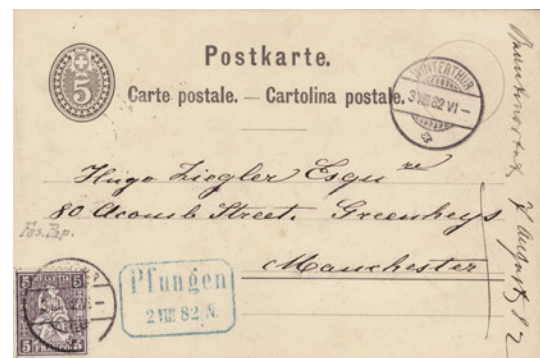 Postkarte.
Carte postale. — Cartolina postale.
5
WINTERTHUR
3 VIII 82 VI –
Hugo Ziegler Esqu re
80 Acomb Street. Greenheys
Manchester
Pfungen
2 VIII 82 N.
5 5
FRANCO
7 August 82